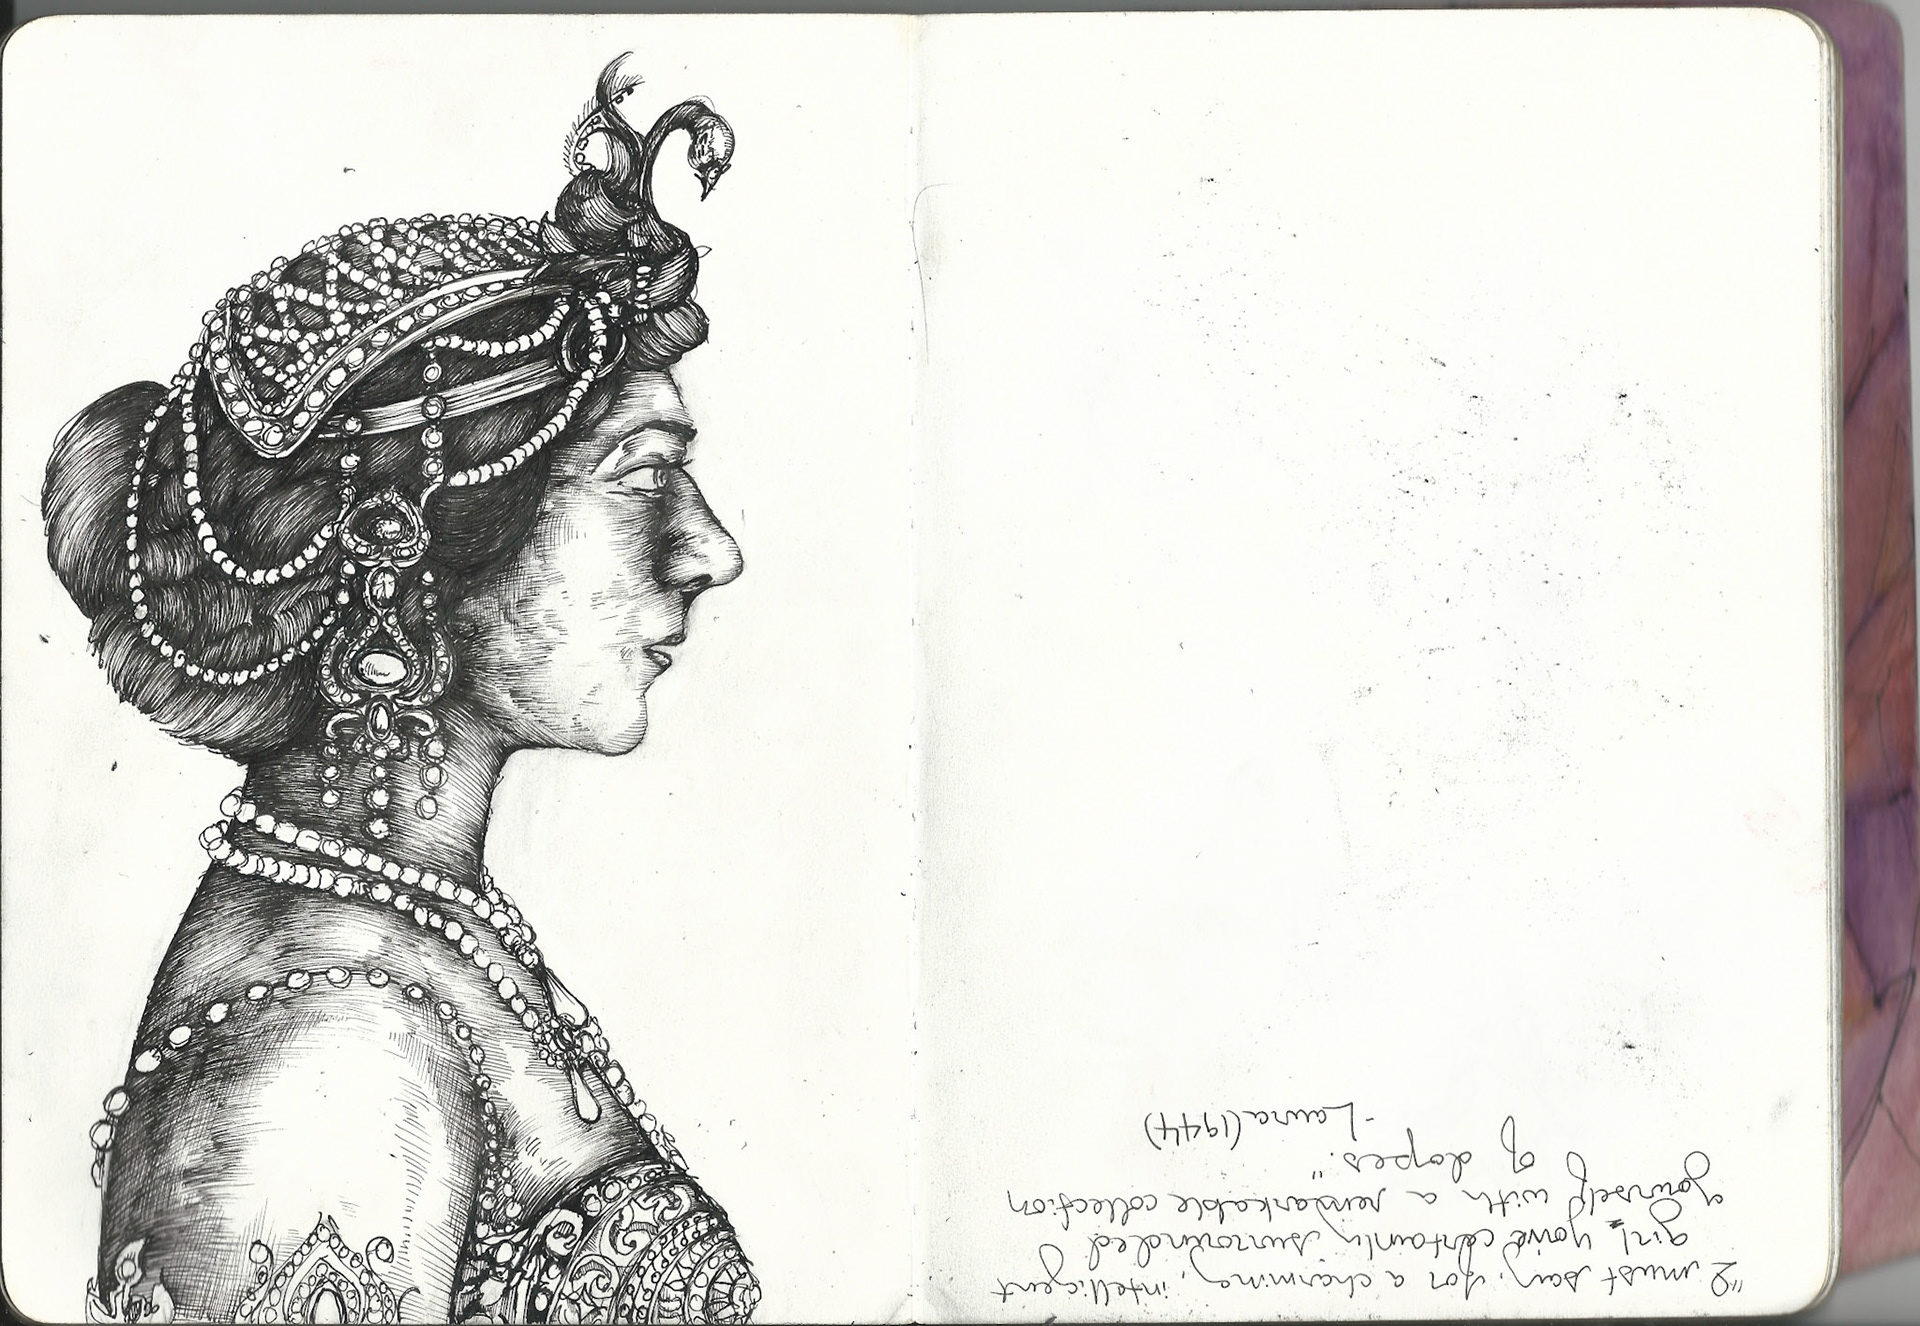 "I must say, for a charming, intelligent
girl, you've certainly surrounded
yourself with a remarkable collection
of dopes."
-Laura (1944)